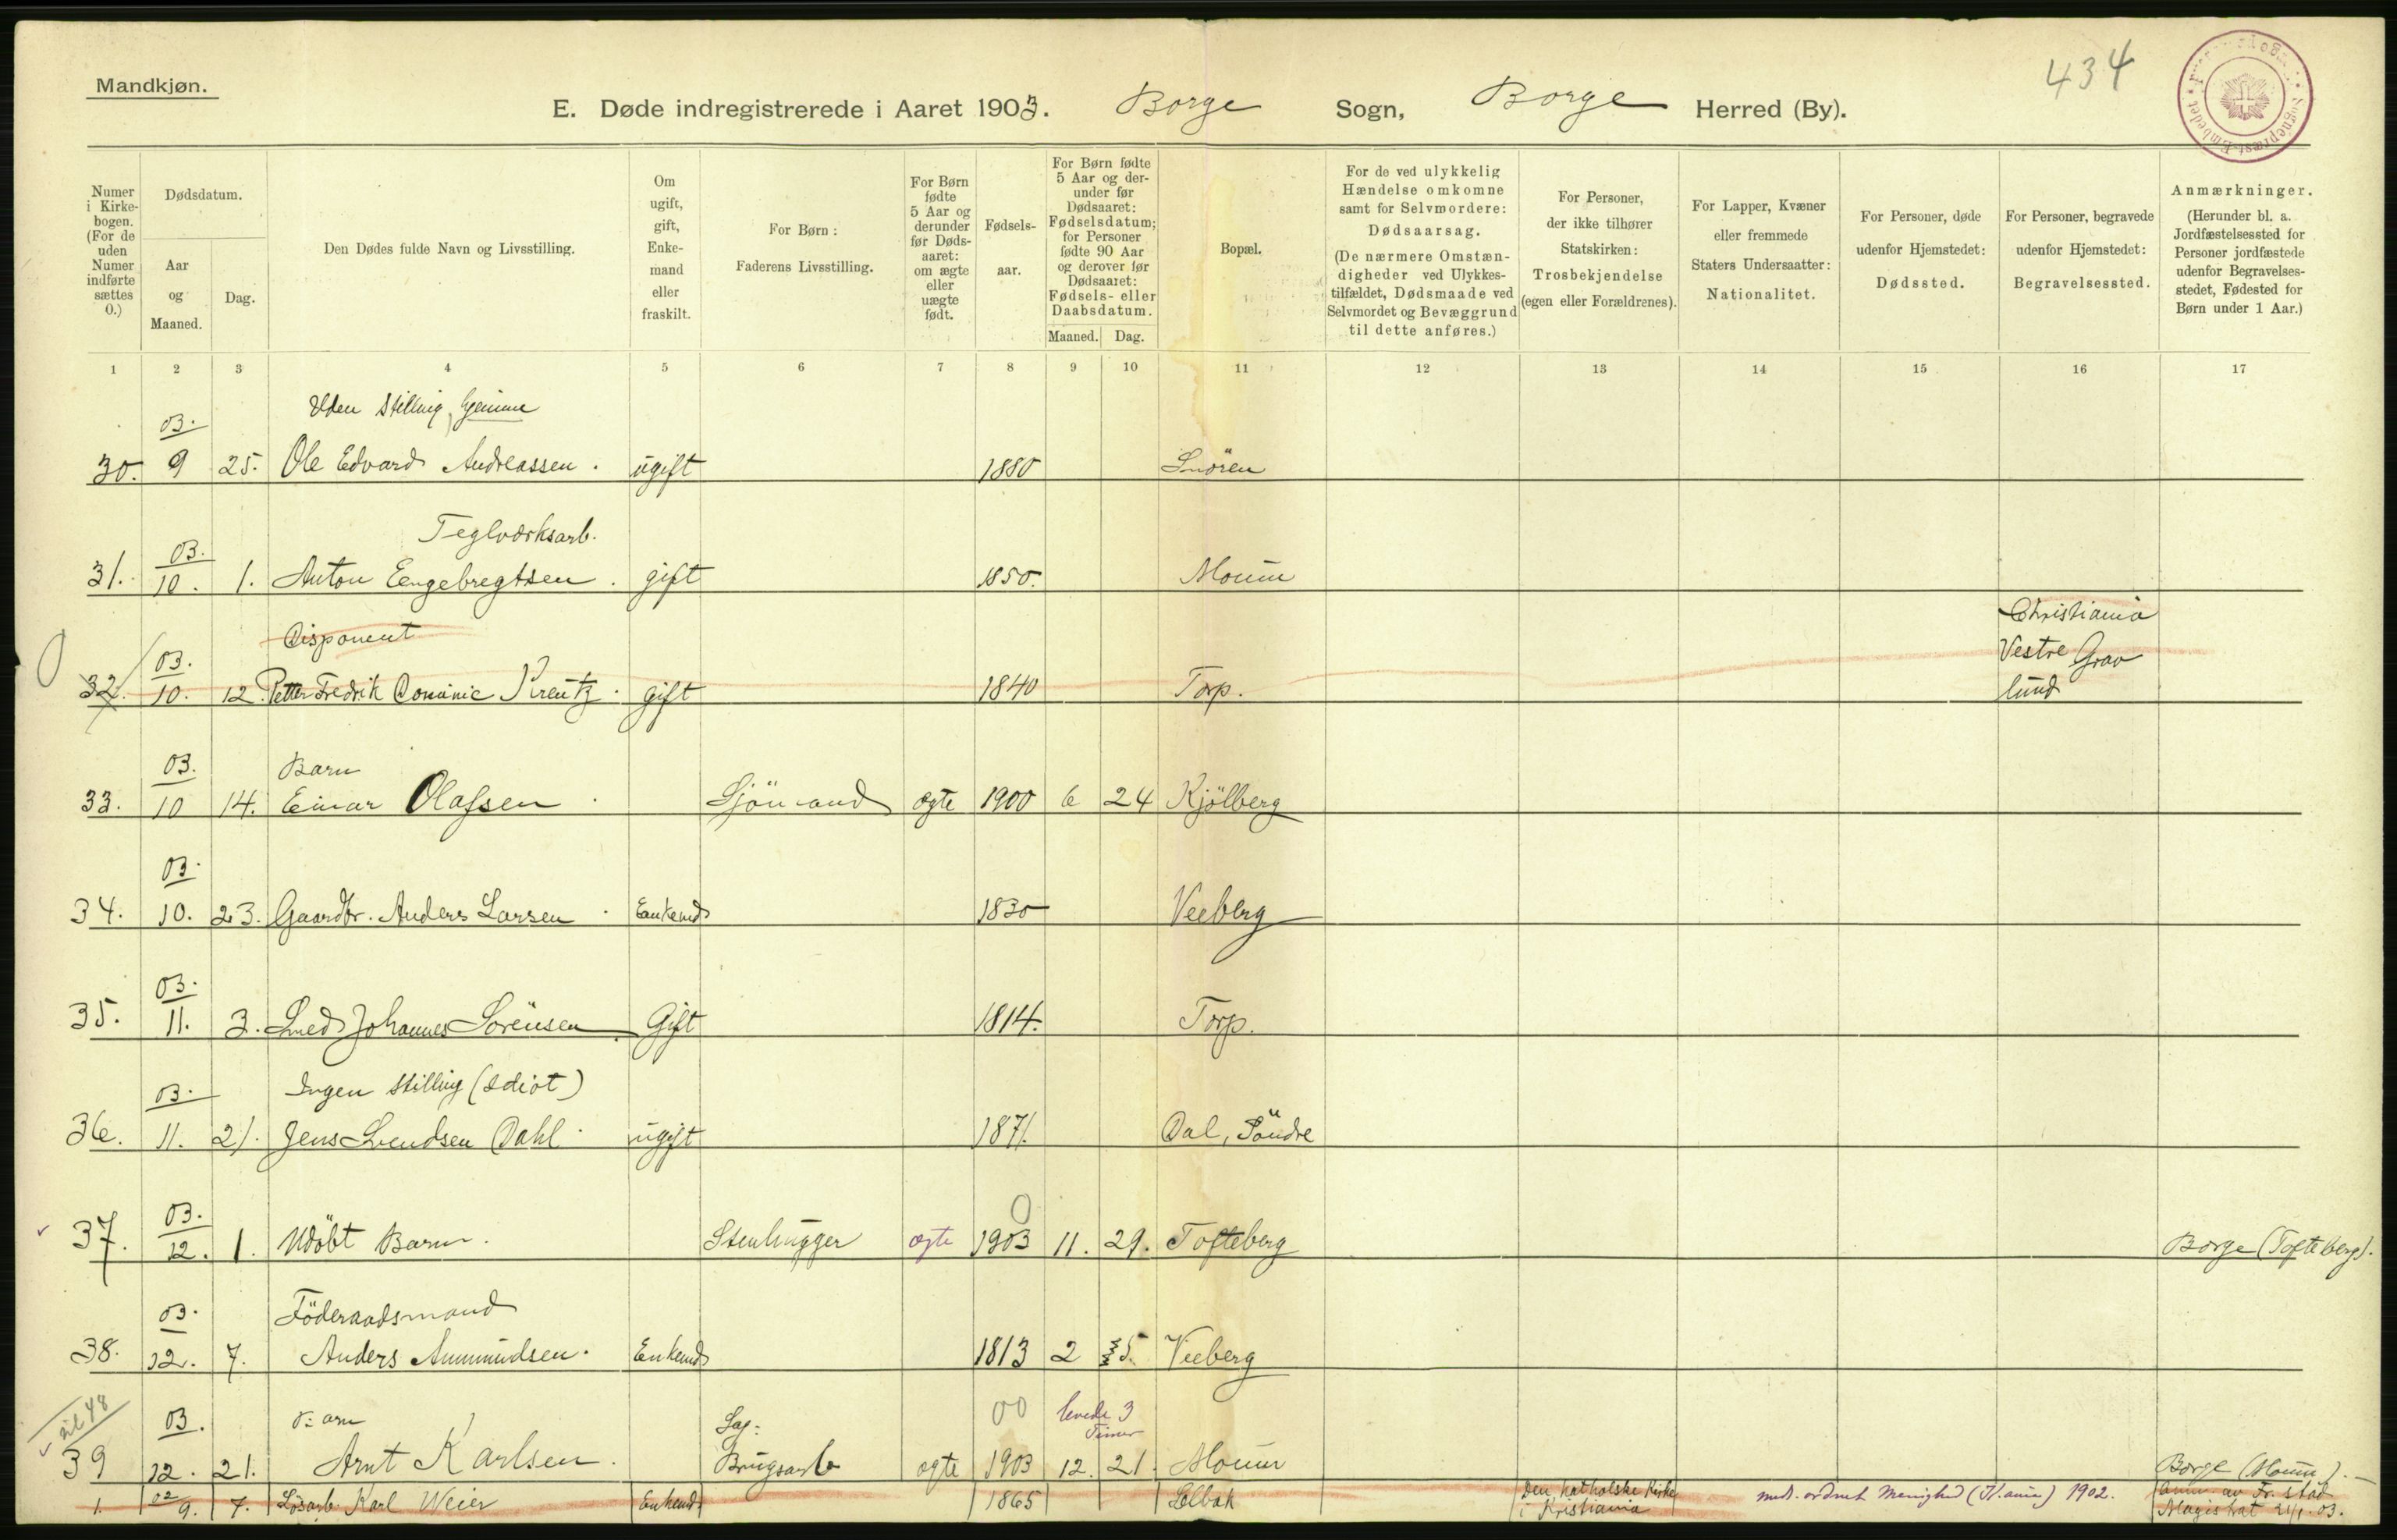 Mandkjøn.
434
E. Døde indregistrerede i Aaret 1903. Borge Sogn, Borge Herred (By).
Numer i Kirkebogen. (For de uden Numer indførte sættes 0.)
Dødsdatum.
Aar og Maaned.
Dag.
Den Dødes fulde Navn og Livsstilling.
Om ugift, gift, Enkemand eller fraskilt.
For Børn: Faderens Livsstilling.
For Børn fødte 5 Aar og derunder før Dødsaaret: om ægte eller uægte født.
Fødselsaar.
For Børn fødte 5 Aar og derunder før Dødsaaret: Fødselsdatum; for Personer fødte 90 Aar og derover før Dødsaaret: Fødsels- eller Daabsdatum.
Maaned. Dag.
Bopæl.
For de ved ulykkelig Hændelse omkomne samt for Selvmordere: Dødsaarsag. (De nærmere Omstændigheder ved Ulykkestilfældet, Dødsmaade ved Selvmordet og Bevæggrund til dette anføres.)
For Personer, der ikke tilhører Statskirken: Trosbekjendelse (egen eller Forældrenes).
For Lapper, Kvæner eller fremmede Staters Undersaatter: Nationalitet.
For Personer, døde udenfor Hjemstedet: Dødssted.
For Personer, begravede udenfor Hjemstedet: Begravelsessted.
Anmærkninger. (Herunder bl. a. Jordfæstelsessted for Personer jordfæstede udenfor Begravelsesstedet, Fødested for Børn under 1 Aar.)
1 2 3 4 5 6 7 8 9 10 11 12 13 14 15 16 17
Uden Stilling, hjemme
03.
30. 9 25. Ole Edvard Andreassen. ugift 1880
Teglværksarb.
03.
31. 10. 1. Anton Eengebregtsen. gift 1850. Moum
Disponent
Christiania
03.
Vestre Grav
32. 10. 12. Petter Fredrik Dominic Kreutz. gift 1840 Torp. lund
03. Barn
33. 10 14. Einar Olafsen. Sjömand ægte 1900 6 24 Kjölberg
03.
34. 10. 23. Gaardbr. Anders Larsen. Enkemd 1830 Veeberg
03.
35. 11. 3. Smed Johannes Sörensen. Gift 1814. Torp.
03. Ingen Stilling (Idiot)
36. 11. 21. Jens Svendsen Dahl. ugift 1871. Dal, Söndre
03. 0
37. 12. 1. Udöbt Barn. Stenhugger ægte 1903 11. 29. Tofteberg Borge (Tofteberg).
03. Föderaadsmand
38. 12. 7. Anders Ammundsen. Enkemd 1813 2 5. Veeberg
til 48
03. Barn Sag- 00 levede 3 Timer
39 12. 21. Arnt Karlsen. Brugsarb ægte 1903 12. 21. Moum Borge (Moum).
1. 02 9. 7. Lösarb. Karl Weier Enkemd 1865 Selbak Den katholske Kirke i Kristiania medl. ordnet Menighed (Kr.ania) 1902. Anm. av Fr.stad Magistrat 21/1. 03.